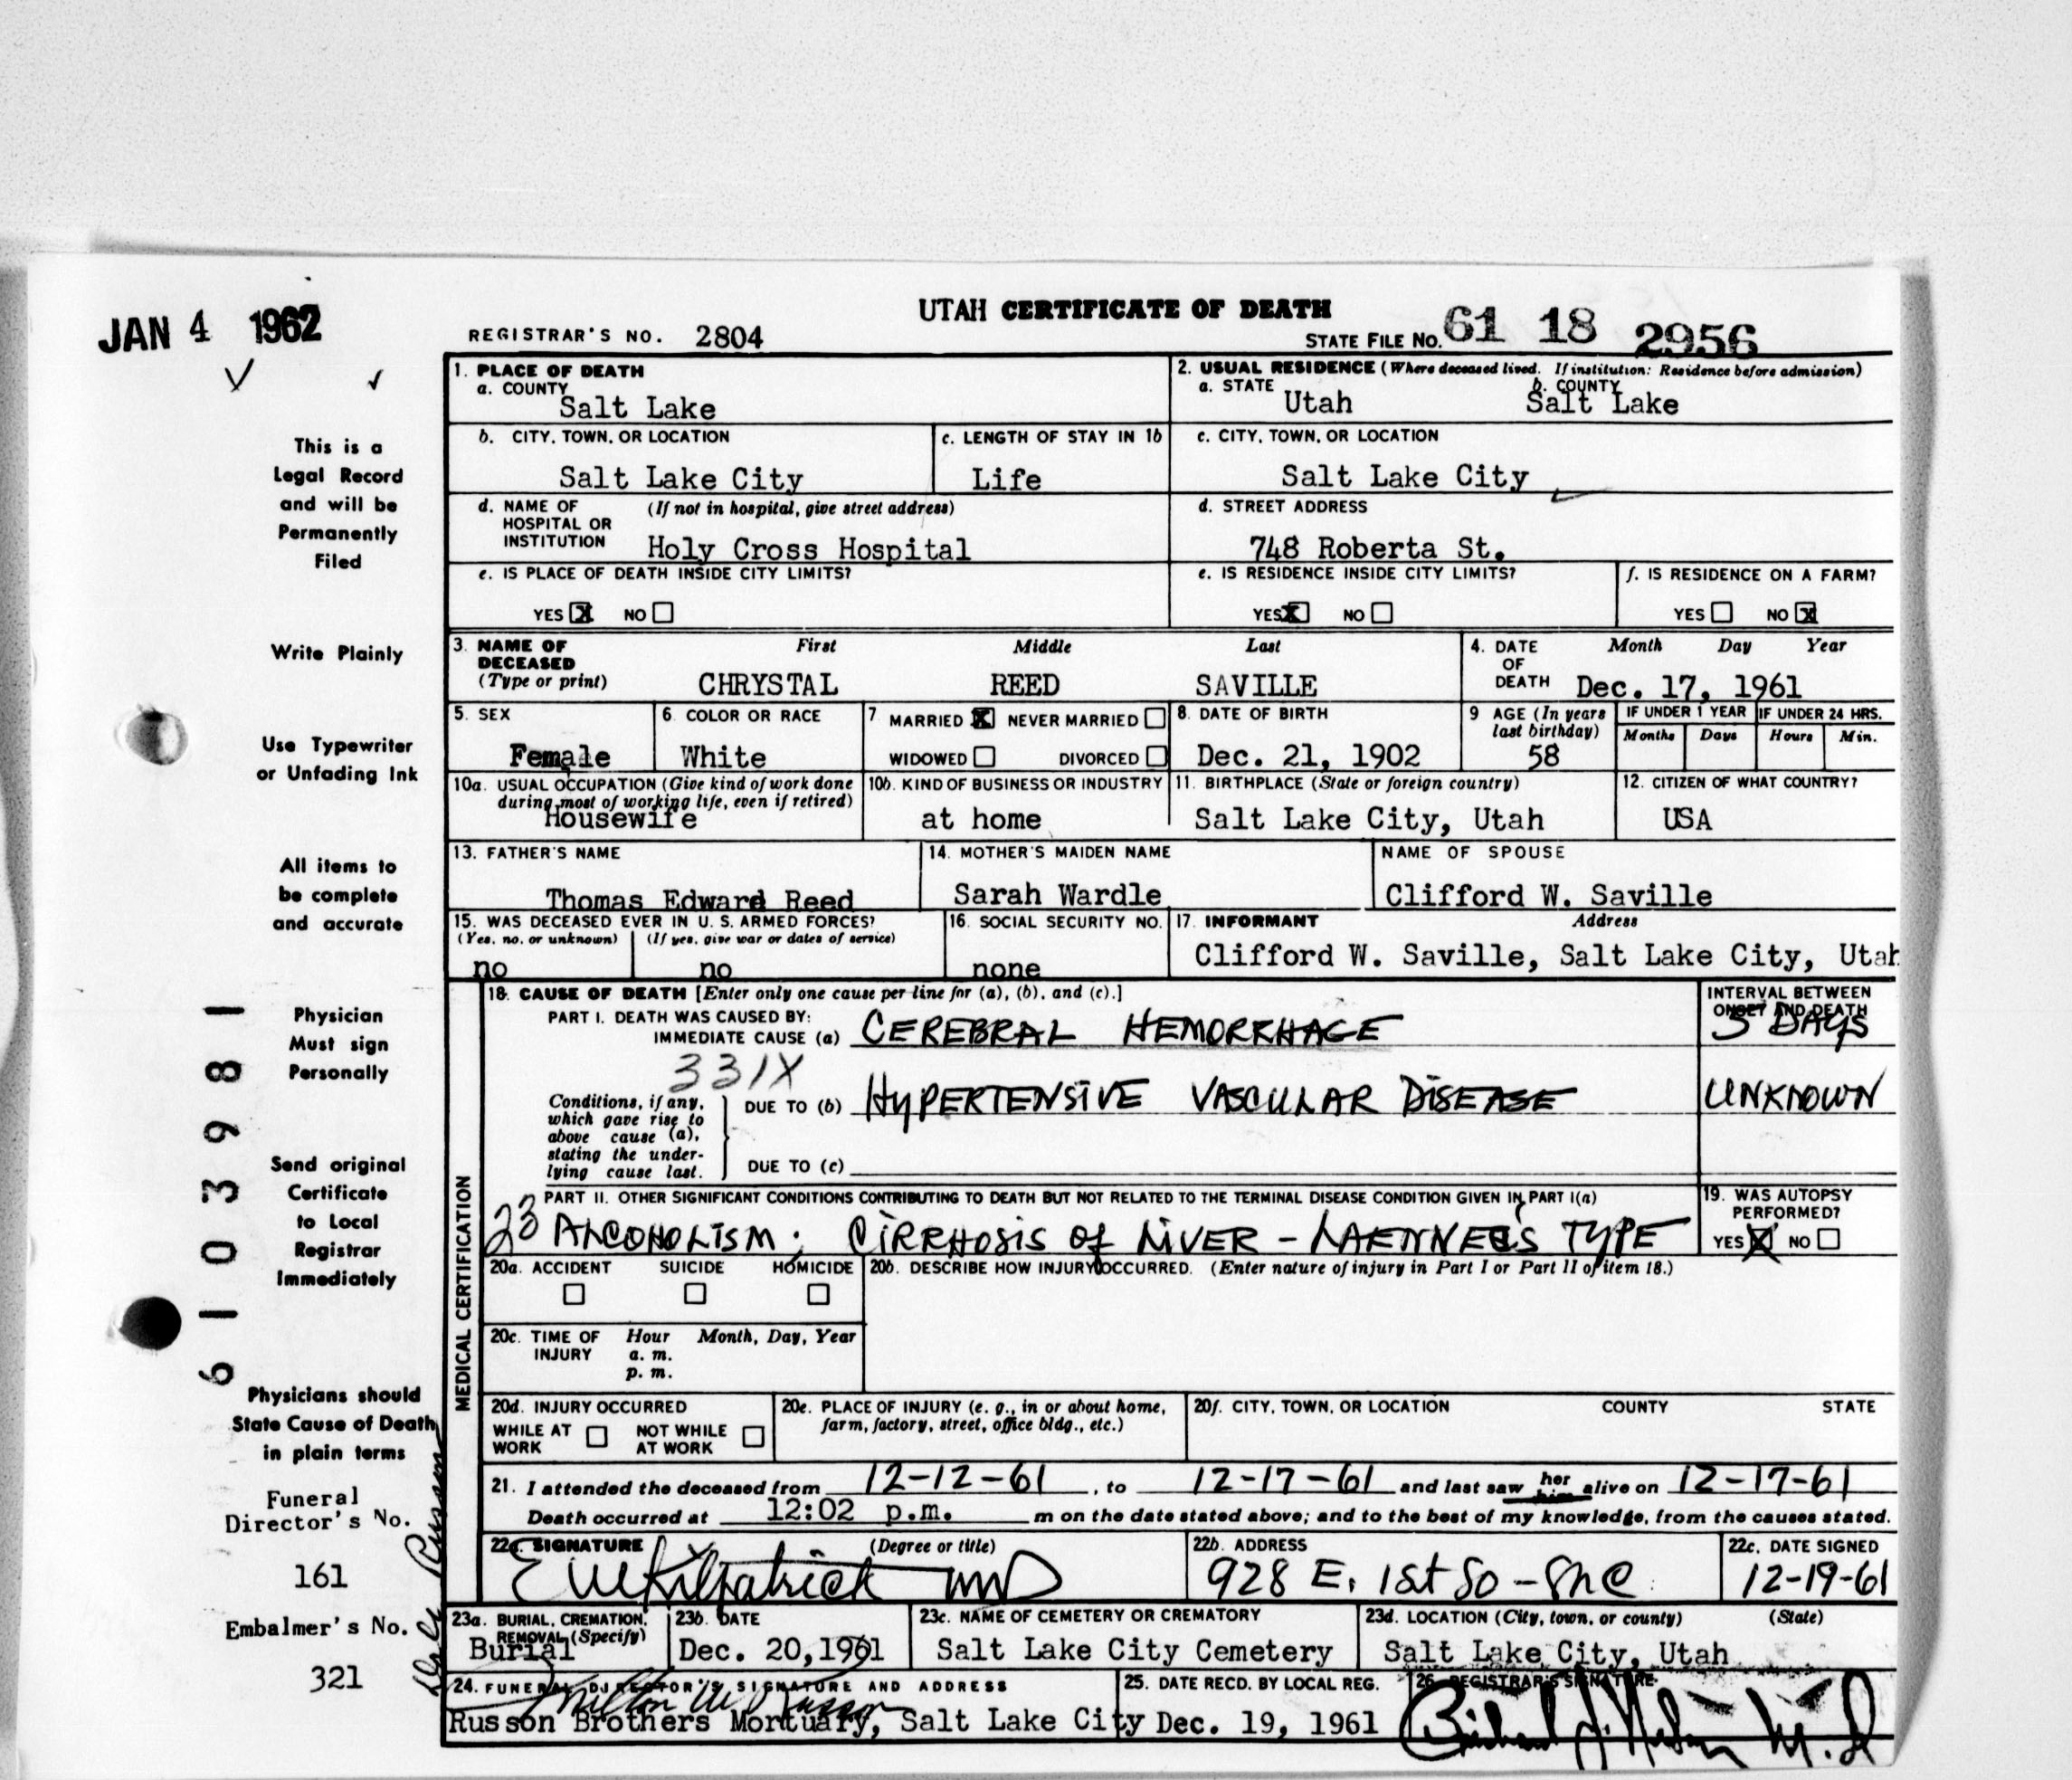 JAN 4 1962
UTAH CERTIFICATE OF DEATH
REGISTRAR'S NO. 2804
STATE FILE NO. 61 18 2956
This is a
Legal Record
and will be
Permanently
Filed
Write Plainly
Use Typewriter
or Unfading Ink
All items to
be complete
and accurate
Physician
Must sign
Personally
Send original
Certificate
to Local
Registrar
Immediately
Physicians should
State Cause of Death
in plain terms
Funeral
Director's No.
161
Embalmer's No.
321
6103981
1. PLACE OF DEATH
a. COUNTY
Salt Lake
2. USUAL RESIDENCE (Where deceased lived. If institution: Residence before admission)
a. STATE b. COUNTY
Utah Salt Lake
b. CITY, TOWN, OR LOCATION
Salt Lake City
c. LENGTH OF STAY IN 1b
Life
c. CITY, TOWN, OR LOCATION
Salt Lake City
d. NAME OF (If not in hospital, give street address)
HOSPITAL OR
INSTITUTION Holy Cross Hospital
d. STREET ADDRESS
748 Roberta St.
e. IS PLACE OF DEATH INSIDE CITY LIMITS?
YES X NO
e. IS RESIDENCE INSIDE CITY LIMITS?
YES X NO
f. IS RESIDENCE ON A FARM?
YES NO X
3. NAME OF First Middle Last
DECEASED
(Type or print) CHRYSTAL REED SAVILLE
4. DATE Month Day Year
OF
DEATH Dec. 17, 1961
5. SEX
Female
6. COLOR OR RACE
White
7 MARRIED X NEVER MARRIED
WIDOWED DIVORCED
8. DATE OF BIRTH
Dec. 21, 1902
9 AGE (In years
last birthday)
58
IF UNDER 1 YEAR
Months Days
IF UNDER 24 HRS.
Hours Min.
10a. USUAL OCCUPATION (Give kind of work done
during most of working life, even if retired)
Housewife
10b. KIND OF BUSINESS OR INDUSTRY
at home
11. BIRTHPLACE (State or foreign country)
Salt Lake City, Utah
12. CITIZEN OF WHAT COUNTRY?
USA
13. FATHER'S NAME
Thomas Edward Reed
14. MOTHER'S MAIDEN NAME
Sarah Wardle
NAME OF SPOUSE
Clifford W. Saville
15. WAS DECEASED EVER IN U. S. ARMED FORCES?
(Yes, no, or unknown) (If yes, give war or dates of service)
no no
16. SOCIAL SECURITY NO.
none
17. INFORMANT Address
Clifford W. Saville, Salt Lake City, Utah
MEDICAL CERTIFICATION
18. CAUSE OF DEATH [Enter only one cause per line for (a), (b), and (c).]
PART I. DEATH WAS CAUSED BY:
IMMEDIATE CAUSE (a) CEREBRAL HEMORRHAGE
331X
Conditions, if any,
which gave rise to
above cause (a),
stating the under-
lying cause last.
DUE TO (b) HYPERTENSIVE VASCULAR DISEASE
DUE TO (c)
INTERVAL BETWEEN
ONSET AND DEATH
5 DAYS
UNKNOWN
PART II. OTHER SIGNIFICANT CONDITIONS CONTRIBUTING TO DEATH BUT NOT RELATED TO THE TERMINAL DISEASE CONDITION GIVEN IN PART I(a)
23 ALCOHOLISM; CIRRHOSIS of LIVER - LAENNEC'S TYPE
19. WAS AUTOPSY
PERFORMED?
YES X NO
20a. ACCIDENT SUICIDE HOMICIDE
20b. DESCRIBE HOW INJURY OCCURRED. (Enter nature of injury in Part I or Part II of item 18.)
20c. TIME OF Hour Month, Day, Year
INJURY a. m.
p. m.
20d. INJURY OCCURRED
WHILE AT NOT WHILE
WORK AT WORK
20e. PLACE OF INJURY (e. g., in or about home,
farm, factory, street, office bldg., etc.)
20f. CITY, TOWN, OR LOCATION COUNTY STATE
21. I attended the deceased from 12-12-61, to 12-17-61 and last saw her him alive on 12-17-61
Death occurred at 12:02 p.m. m on the date stated above; and to the best of my knowledge, from the causes stated.
22a. SIGNATURE (Degree or title)
E W Kilpatrick MD
22b. ADDRESS
928 E. 1st So - SLC
22c. DATE SIGNED
12-19-61
23a. BURIAL, CREMATION,
REMOVAL (Specify)
Burial
23b. DATE
Dec. 20, 1961
23c. NAME OF CEMETERY OR CREMATORY
Salt Lake City Cemetery
23d. LOCATION (City, town, or county) (State)
Salt Lake City, Utah
24. FUNERAL DIRECTOR'S SIGNATURE AND ADDRESS
Russon Brothers Mortuary, Salt Lake City
25. DATE RECD. BY LOCAL REG.
Dec. 19, 1961
26. REGISTRAR'S SIGNATURE